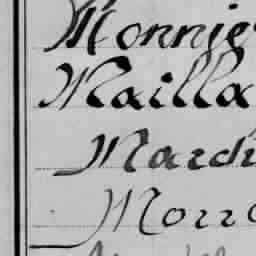 Monnie
Mailla
March
Morro